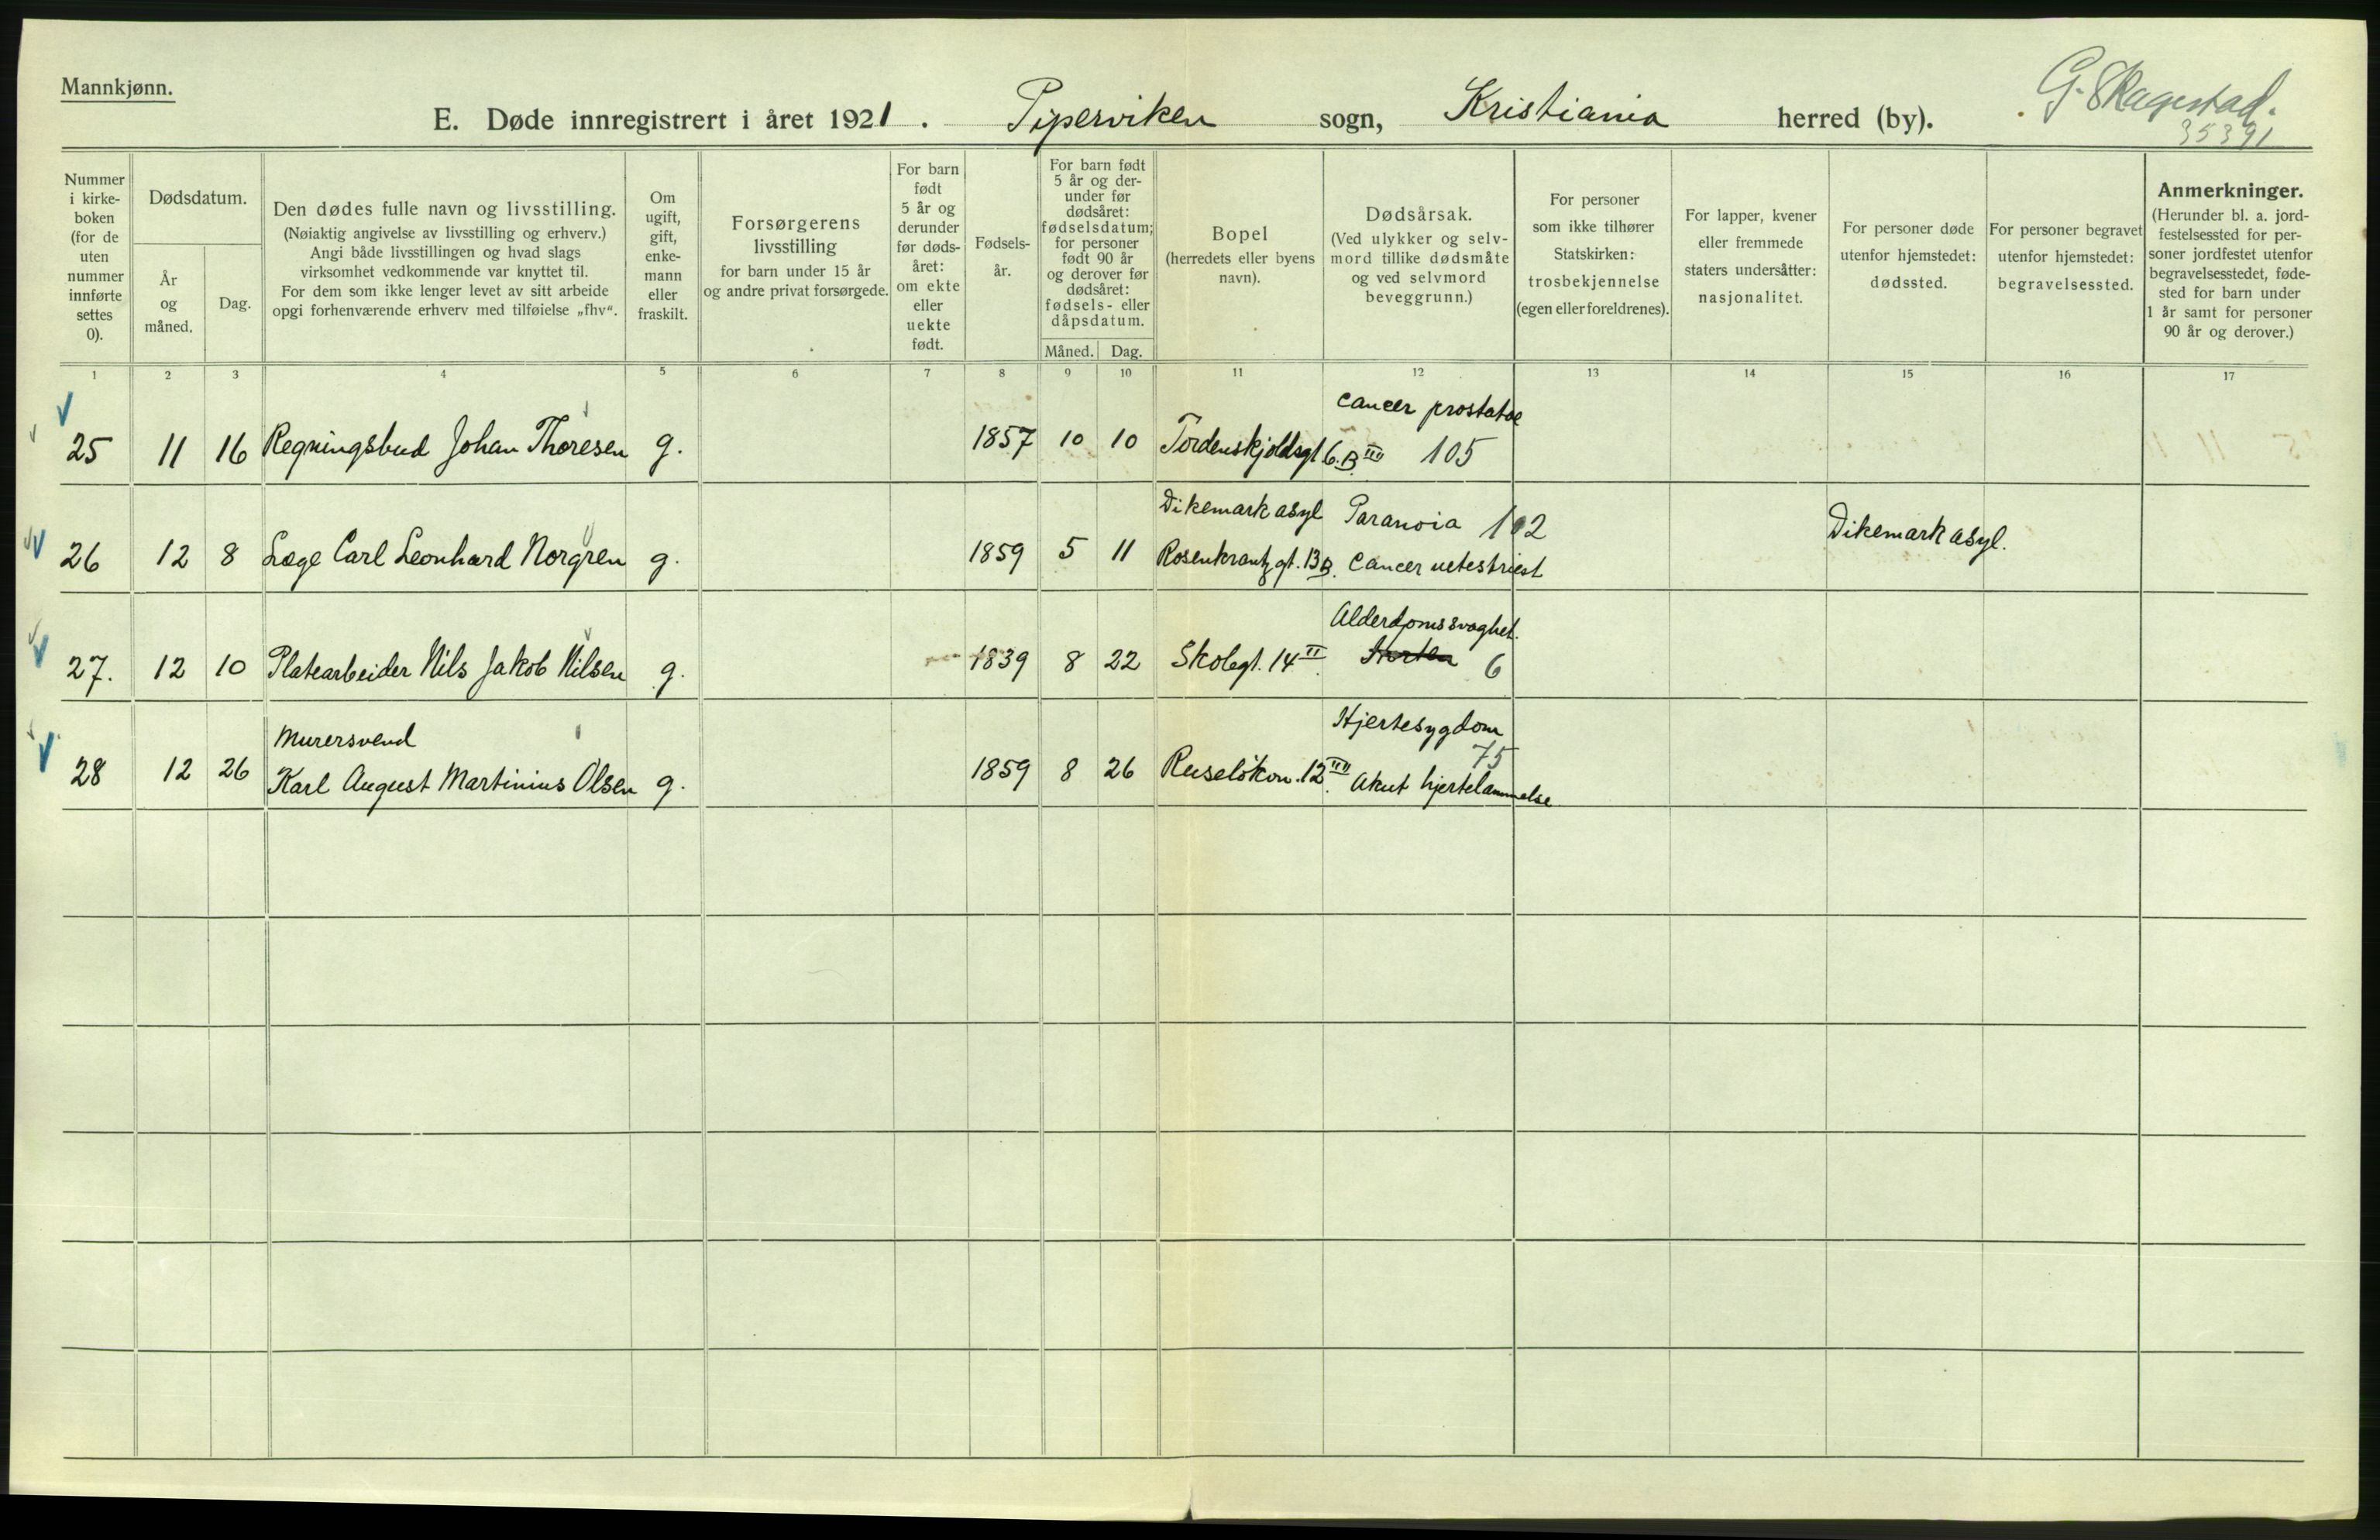 Mannkjønn.
E. Døde innregistrert i året 1921. Piperviken sogn, Kristiania herred (by).
G. Skagestad.
35391
Nummer i kirke-boken (for de uten nummer innførte settes 0).
Dødsdatum.
År og måned.
Dag.
Den dødes fulle navn og livsstilling.
(Nøiaktig angivelse av livsstilling og erhverv.)
Angi både livsstillingen og hvad slags
virksomhet vedkommende var knyttet til.
For dem som ikke lenger levet av sitt arbeide
opgi forhenværende erhverv med tilføielse „fhv“.
Om ugift, gift, enke-mann eller fraskilt.
Forsørgerens
livsstilling
for barn under 15 år
og andre privat forsørgede.
For barn født 5 år og derunder før døds-året: om ekte eller uekte født.
Fødsels-år.
For barn født
5 år og der-
under før
dødsåret:
fødselsdatum;
for personer
født 90 år
og derover før
dødsåret:
fødsels- eller
dåpsdatum.
Måned. Dag.
Bopel
(herredets eller byens
navn).
Dødsårsak.
(Ved ulykker og selv-
mord tillike dødsmåte
og ved selvmord
beveggrunn.)
For personer
som ikke tilhører
Statskirken:
trosbekjennelse
(egen eller foreldrenes).
For lapper, kvener
eller fremmede
staters undersåtter:
nasjonalitet.
For personer døde
utenfor hjemstedet:
dødssted.
For personer begravet
utenfor hjemstedet:
begravelsessted.
Anmerkninger.
(Herunder bl. a. jord-
festelsessted for per-
soner jordfestet utenfor
begravelsesstedet, føde-
sted for barn under
1 år samt for personer
90 år og derover.)
1 2 3 4 5 6 7 8 9 10 11 12 13 14 15 16 17
cancer prostatae
25 11 16 Regningsbud Johan Thoresen g. 1857 10 10 Tordenskjoldsgt 6.B III 105
Dikemark asyl Paranoia 102 Dikemark asyl.
26 12 8 Læge Carl Leonhard Norgren g. 1859 5 11 Rosenkrantzgt. 13B. Cancer
Alderdomssvaghet.
27. 12 10 Platearbeider Nils Jakob Nilsen g. 1839 8 22 Skolegt. 14 II 6
Murersvend Hjertesygdom
75
28 12 26 Karl August Martinius Olsen g. 1859 8 26 Ruseløkvn. 12 III Akut hjertelammelse